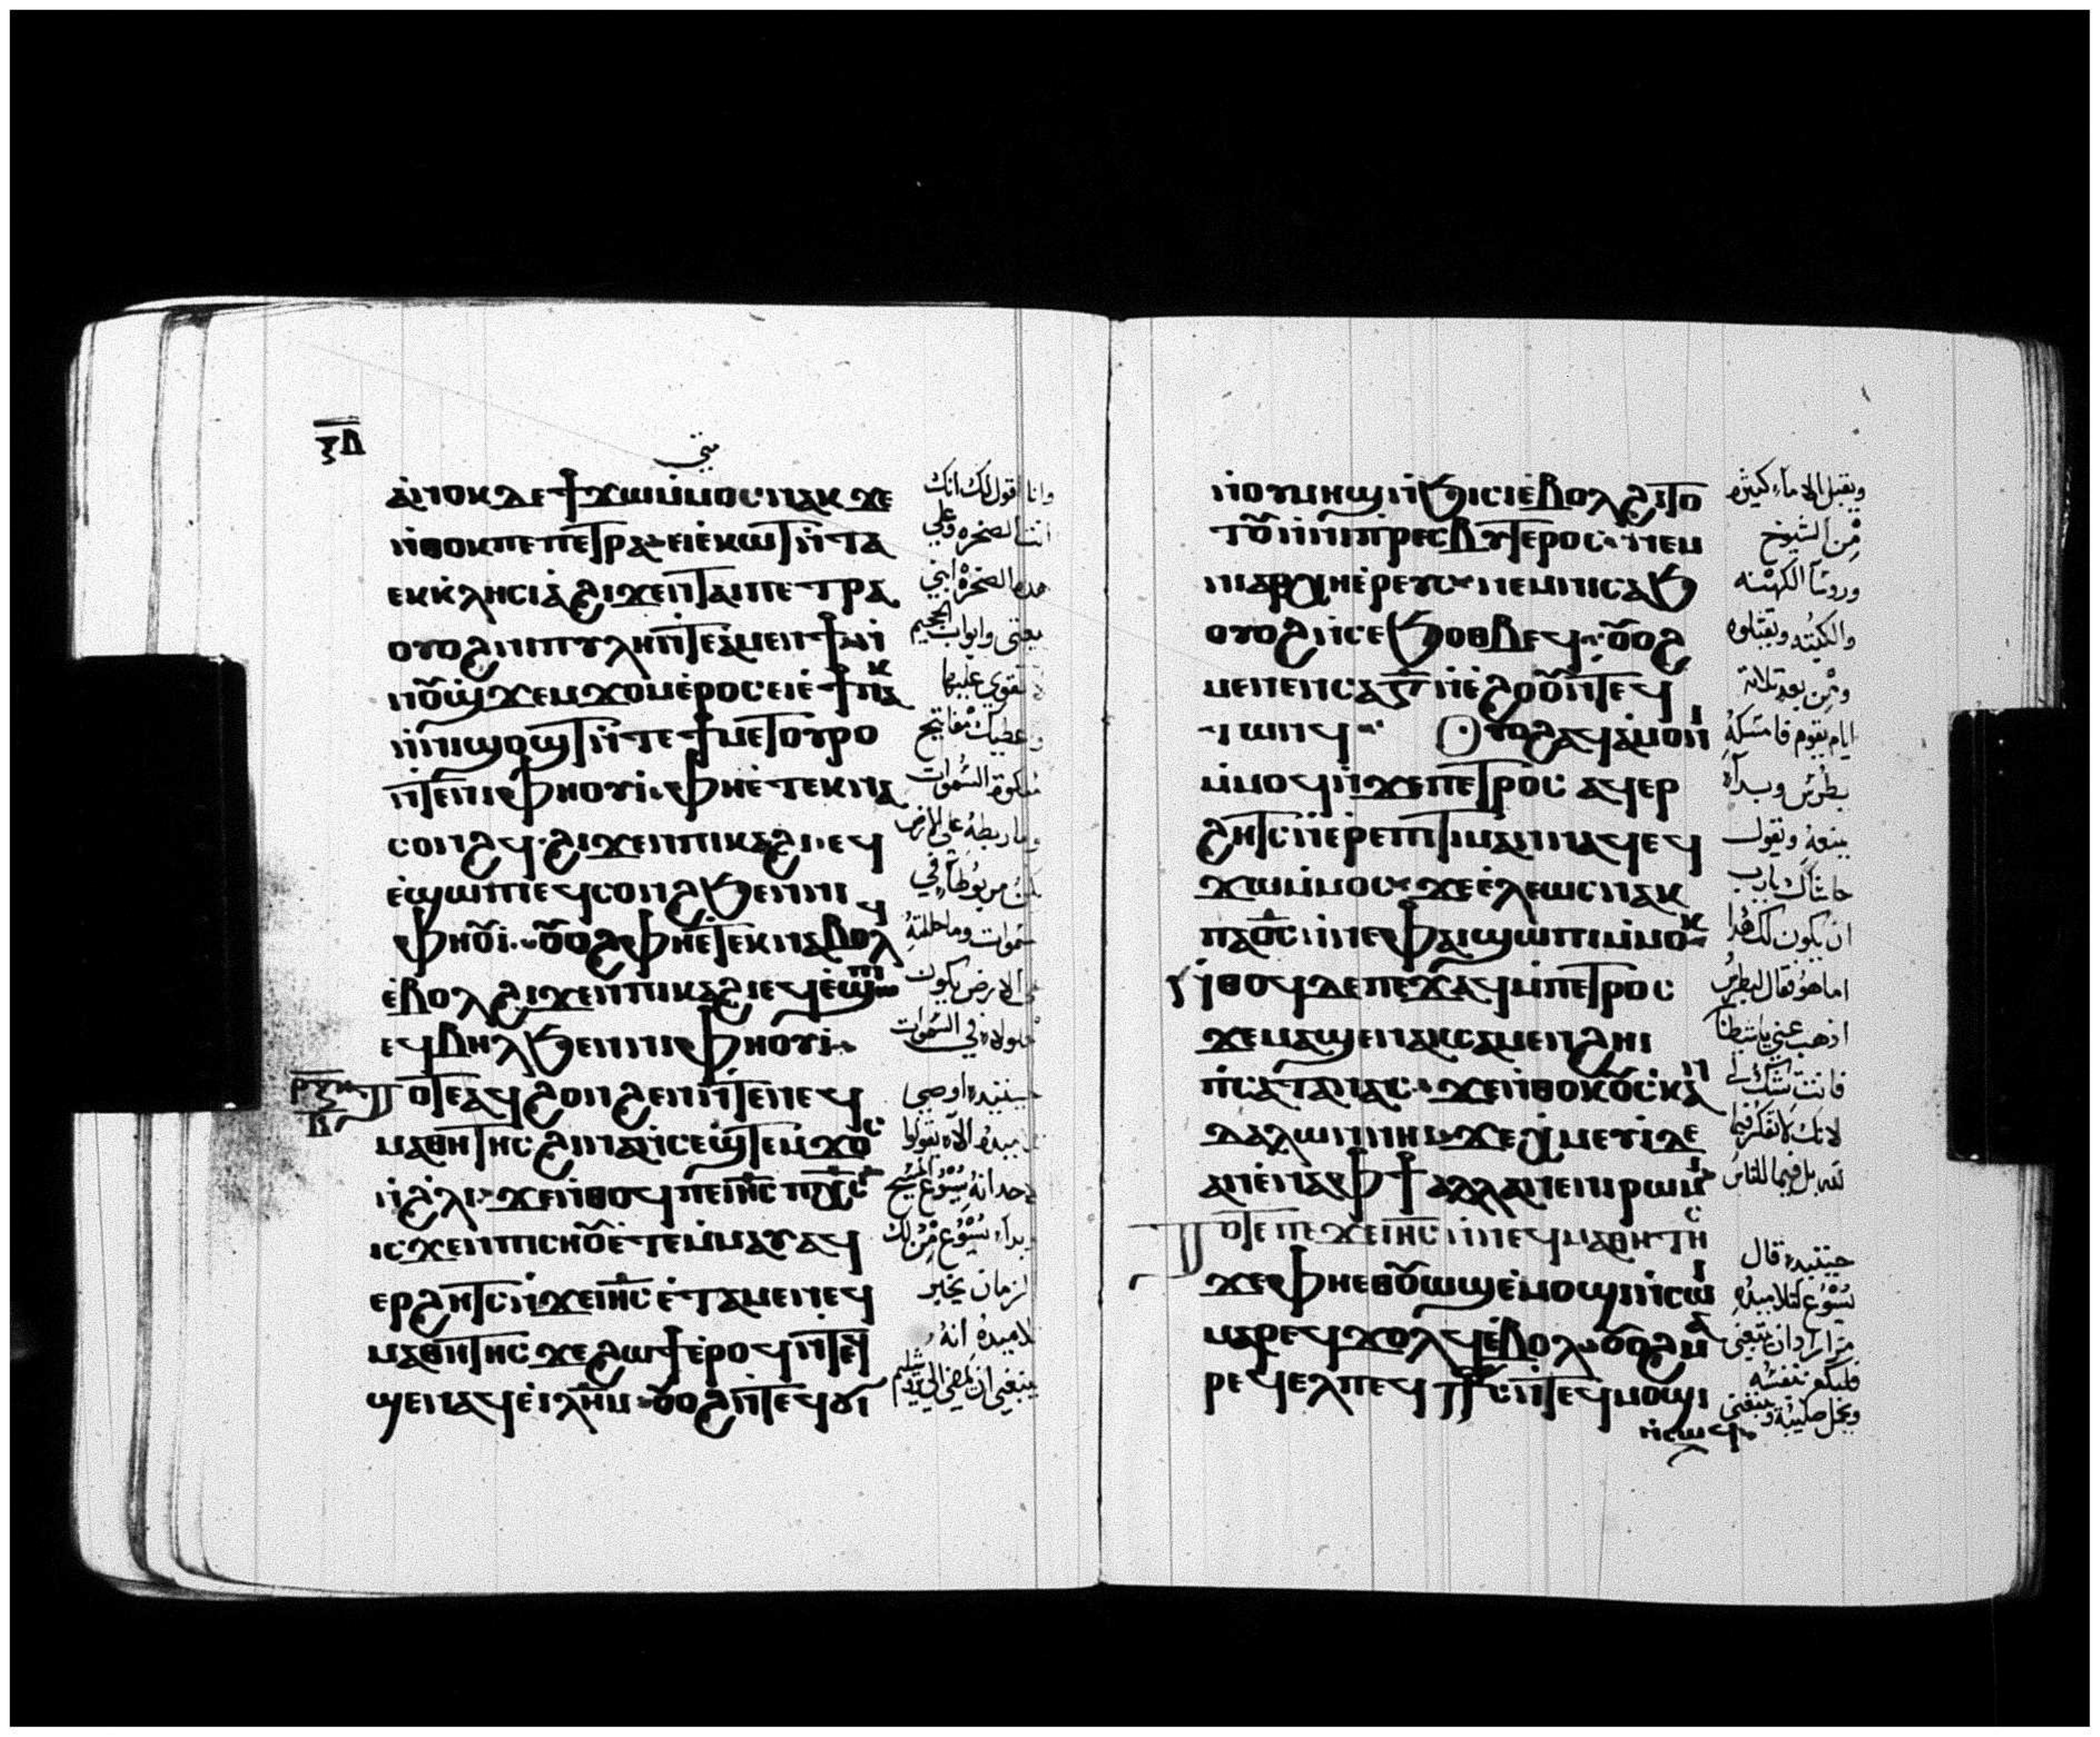 ⲝⲇ
متي
ⲁⲛⲟⲕ ⲇⲉ ϯϫⲱⲙⲙⲟⲥ ⲛⲁⲕ ϫⲉ
ⲛⲑⲟⲕ ⲡⲉ ⲡⲉⲧⲣⲁ ⲉⲓⲉⲕⲱⲧ ⲛⲧⲁ
ⲉⲕⲕⲗⲏⲥⲓⲁ ϩⲓϫⲉⲛ ⲧⲁⲓⲡⲉⲧⲣⲁ
ⲟⲩⲟϩ ⲛⲓⲡⲩⲗⲏ ⲛⲧⲉ ⲁⲙⲉⲛϯ ⲛⲓ
ⲛⲟⲩϣϫⲉⲙϫⲟⲙ ⲉⲣⲟⲥ ⲉⲓⲉϯ ⲛⲁⲕ
ⲛⲛⲓϣⲟϣⲧ ⲛⲧⲉ ϯⲙⲉⲧⲟⲩⲣⲟ
ⲛⲧⲉ ⲛⲓⲫⲏⲟⲩⲓ ⲫⲏ ⲉⲧⲉⲕⲛⲁ
ⲥⲟⲛϩϥ ϩⲓϫⲉⲛ ⲡⲓⲕⲁϩⲓ ⲉϥ
ⲉϣⲱⲡⲓ ⲉϥⲥⲟⲛϩ ϧⲉⲛ ⲛⲓ
ⲫⲏⲟⲩⲓ ⲟⲩⲟϩ ⲫⲏ ⲉⲧⲉⲕⲛⲁⲃⲟⲗϥ
ⲉⲃⲟⲗ ϩⲓϫⲉⲛ ⲡⲓⲕⲁϩⲓ ⲉϥⲉϣⲱⲡⲓ
ⲉϥⲃⲏⲗ ϧⲉⲛ ⲛⲓⲫⲏⲟⲩⲓ
ⲣⲝⲕ ⲧⲟⲧⲉ ⲁϥϩⲟⲛϩⲉⲛ ⲛⲧⲉⲛ ⲛⲉϥ
ⲃ ⲙⲁⲑⲏⲧⲏⲥ ϩⲓⲛⲁ ⲛⲥⲉϣⲧⲉⲙϫⲟⲥ
ⲛϩⲗⲓ ϫⲉ ⲛⲑⲟϥ ⲡⲉ ⲓⲏⲥ ⲡⲭⲥ
ⲓⲥϫⲉⲛ ⲡⲓⲥⲏⲟⲩ ⲉⲧⲉⲙⲙⲁⲩ ⲁϥ
ⲉⲣϩⲏⲧⲥ ⲛϫⲉ ⲓⲏⲥ ⲉⲧⲁⲙⲉ ⲛⲉϥ
ⲙⲁⲑⲏⲧⲏⲥ ϫⲉ ϩⲱϯ ⲉⲣⲟϥ ⲛⲧⲉϥ
ϣⲉⲛⲁϥ ⲉⲓⲗⲏⲙ ⲟⲩⲟϩ ⲛⲧⲉϥϭⲓ
وانا اقول لك انك
انت الصخره وعلي
هذه الصخره ابني
بيعتي وابواب الجحيم
لا تقوي عليها
واعطيك مفاتيح
ملكوة السموات
وما ربطته علي الارض
يكون مربوطاً في
السموات وما حللته
علي الارض يكون
محلولاه في السموات
حينيذ اوصي
تلاميده الا يقولوا
لاحد انه يسوع المسيح
وبدا يسوع من ذلك
الزمان يخبر
تلاميده انه
ينبغي ان يمضي الي يروشليم
ⲛⲟⲩⲙⲏϣ ⲛϧⲓⲥⲓ ⲉⲃⲟⲗ ϩⲓⲧⲟ
ⲧⲟⲩ ⲛⲛⲓⲡⲣⲉⲥⲃⲩⲧⲉⲣⲟⲥ ⲛⲉⲙ
ⲛⲓⲁⲣⲭⲏⲉⲣⲉⲩⲥ ⲛⲉⲙ ⲛⲓⲥⲁϧ
ⲟⲩⲟϩ ⲛⲥⲉϧⲟⲑⲃⲉϥ ⲟⲩⲟϩ
ⲙⲉⲛⲉⲛⲥⲁ ⲅ ⲛⲉϩⲟⲟⲩ ⲛⲧⲉϥ
ⲧⲱⲛϥ ⲟⲩⲟϩ ⲁϥⲁⲙⲟⲛⲓ
ⲙⲙⲟϥ ⲛϫⲉ ⲡⲉⲧⲣⲟⲥ ⲁϥⲉⲣ
ϩⲏⲧⲥ ⲛⲉⲣⲉⲡⲓⲧⲓⲙⲁⲛ ⲛⲁϥ ⲉϥ
ϫⲱⲙⲙⲟⲥ ϫⲉ ⲉⲗⲉⲱⲥ ⲛⲁⲕ
ⲡⲁⲟⲥ ⲛⲛⲉ ⲫⲁⲓ ϣⲱⲡⲓ ⲙⲙⲟⲕ
ⲛⲑⲟϥ ⲇⲉ ⲡⲉϫⲁϥ ⲙⲡⲉⲧⲣⲟⲥ
ϫⲉ ⲙⲁϣⲉⲛⲁⲕ ⲥⲁⲙⲉⲛϩⲏⲓ
ⲡⲥⲁⲧⲁⲛⲁⲥ ϫⲉ ⲛⲑⲟⲕ ⲟⲩⲥⲕⲁⲛ
ⲇⲁⲗⲱⲛ ⲛⲏⲓ ϫⲉ ⲭⲙⲉⲩⲓ ⲇⲉ
ⲁⲛ ⲉⲛⲁ ⲫϯ ⲁⲗⲗⲁ ⲛⲉⲛⲓⲣⲱⲙⲓ
ⲧⲟⲧⲉ ⲡⲉϫⲉ ⲓⲏⲥ ⲛⲛⲉϥⲙⲁⲑⲏⲧⲏⲥ
ϫⲉ ⲫⲏ ⲉⲑⲟⲩⲱϣ ⲉⲙⲟϣⲓ ⲛⲥⲱⲓ
ⲙⲁⲣⲉϥϫⲟⲗϥ ⲉⲃⲟⲗ ⲟⲩⲟϩ ⲙⲁ
ⲣⲉϥⲉⲗ ⲡⲉϥ ⲥ ⲛⲧⲉϥⲙⲟϣⲓ
ⲛⲥⲱϥ
ويقبل الاماً كثيره
من الشيوخ
وروسآ الكهنه
والكتبه ويقتلوه
ومن بعد تلاتة
ايام يقوم فامسكه
بطرس وبدآ
يمنعه ويقول
حاشاك يارب
ان يكون لك هذا
اما هو فقال لبطرس
اذهب عني يا شيطان
فانت شك لي
لانك لا تفكر فيما
لله بل فيما للناس
حينيذ قال
يسوع لتلاميده
من اراد ان يتبعني
فليكفر بنفسه
ويحمل صليبه ويتبعني